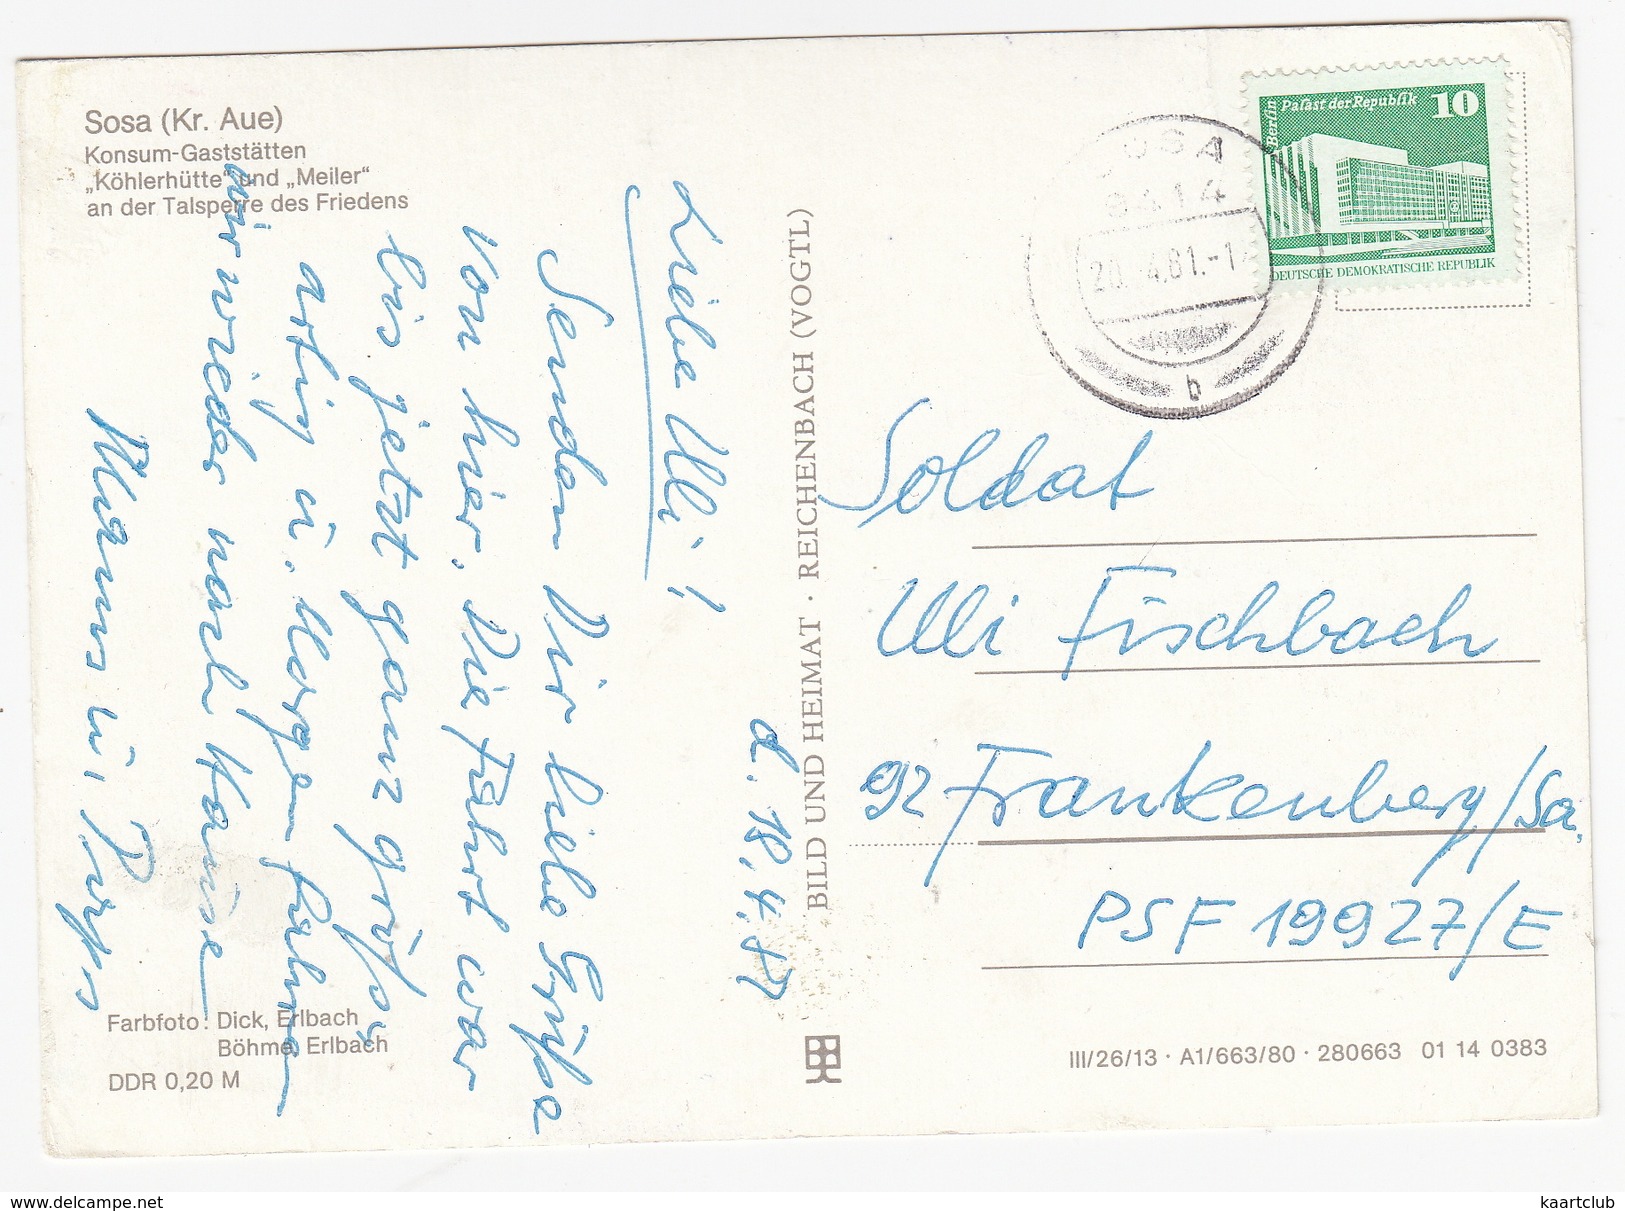 Sosa (Kr. Aue)
Konsum-Gaststätten
„Köhlerhütte“ und „Meiler“
an der Talsperre des Friedens
d. 18.4.81
Liebe Uli!
Senden Dir liebe Grüße
von hier. Die Fahrt war
bis jetzt ganz
artig u. Morgen fahren
wir wieder nach Hause
Mama u. Papa
Farbfoto: Dick, Erlbach
Böhme, Erlbach
DDR 0,20 M
BILD UND HEIMAT · REICHENBACH (VOGTL)
Berlin
Palast der Republik 10
DEUTSCHE DEMOKRATISCHE REPUBLIK
OSA
9414
20. 4.81.-1
b
Soldat
Uli Fischbach
92 Frankenberg/Sa.
PSF 19927/E
III/26/13 · A1/663/80 · 280663 01 14 0383
www.delcampe.net
kaartclub